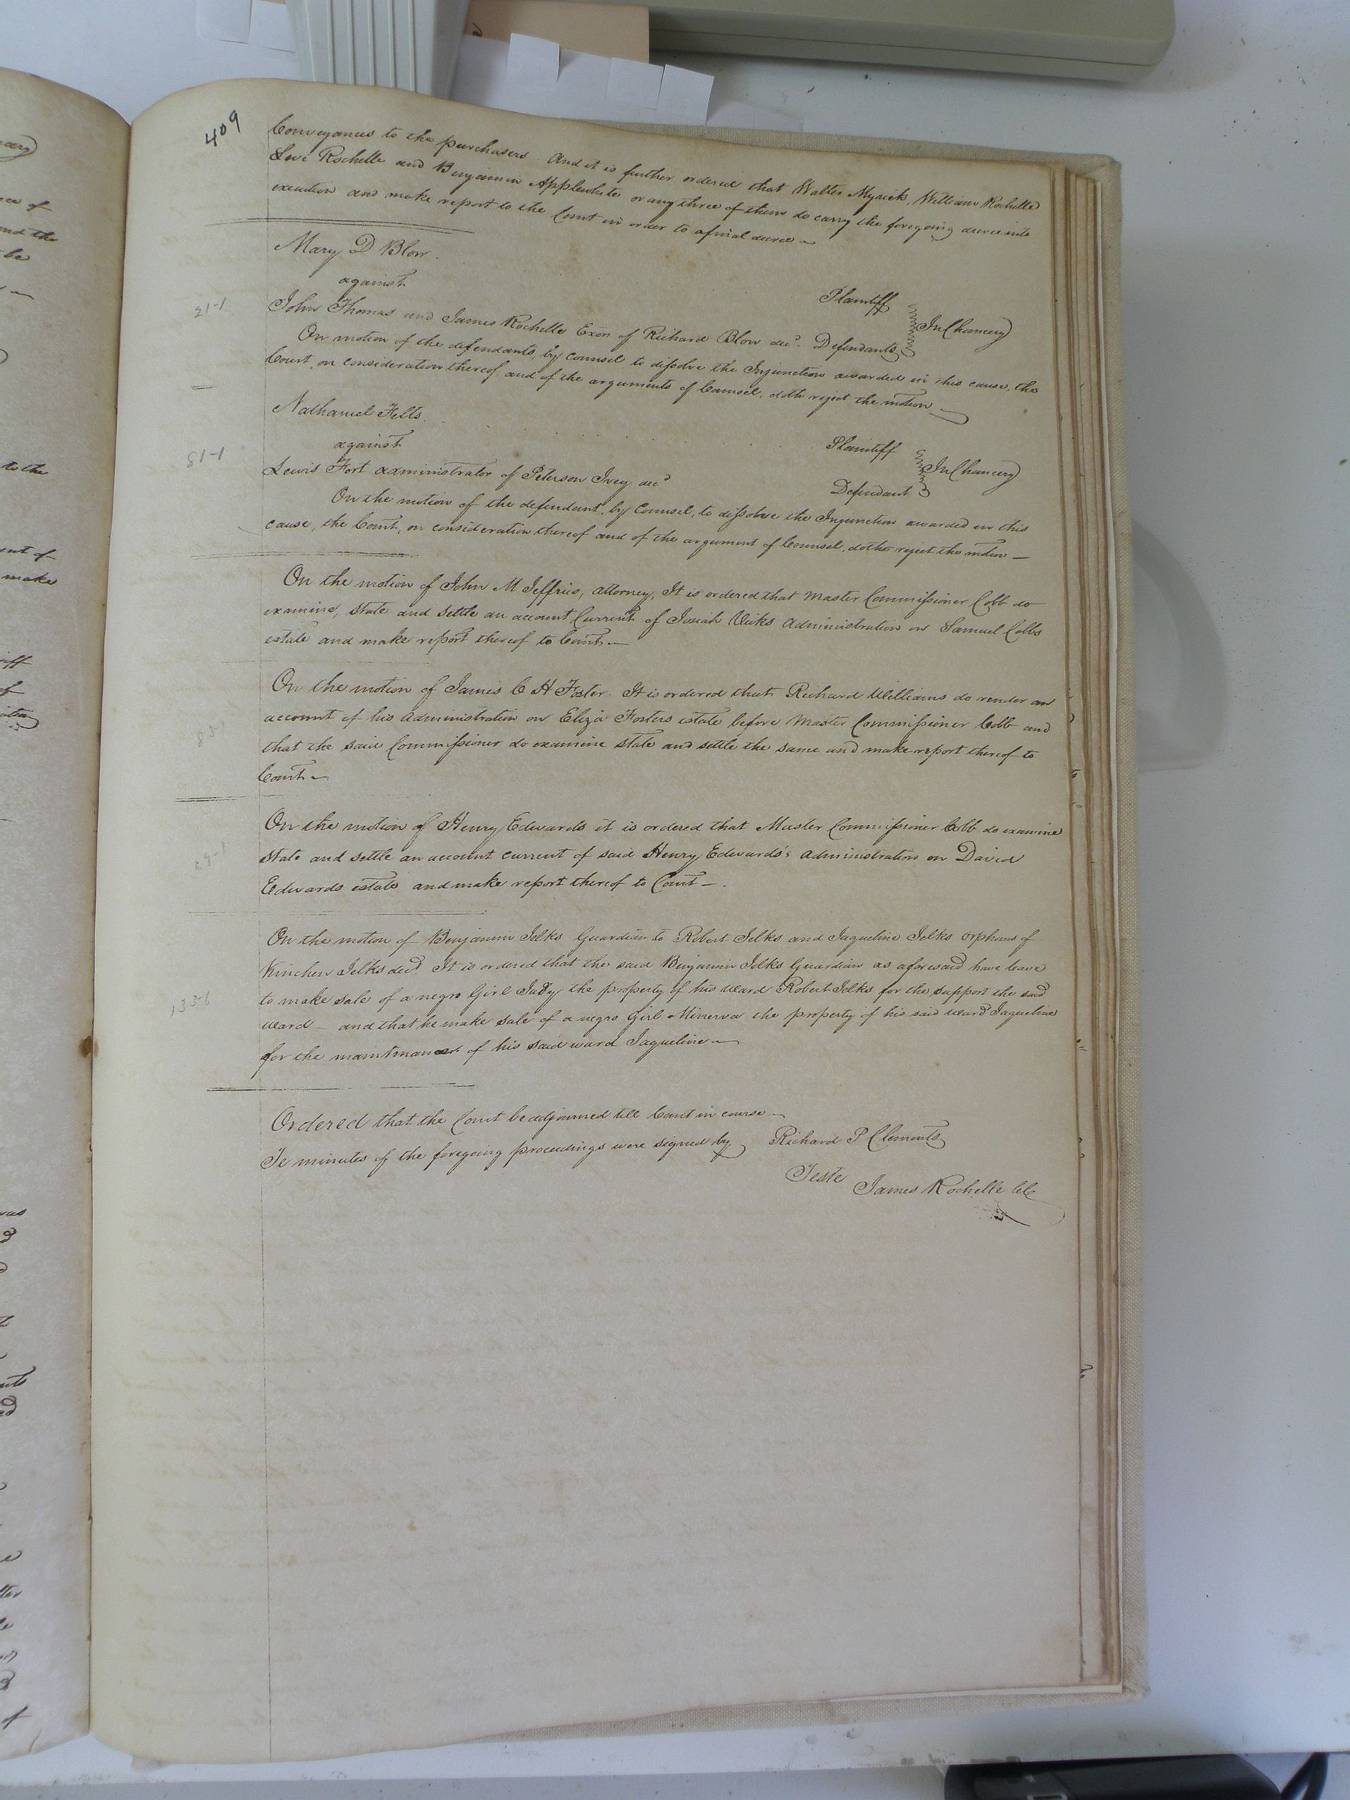 409
Conveyances to the purchasers And it is further ordered that Walter Myrick, William Rochelle
Levi Rochelle and Benjamin Applewhite or any three of them do carry the foregoing decree into
execution and make report to the Court in order to a final decree
Mary D Blow.
against Plaintiff
John Thomas and James Rochelle Exors of Richard Blow decd. Defendants In Chancery
On motion of the defendants, by counsel to dissolve the Injunction awarded in this cause, the
Court, on consideration thereof, and of the arguments of Counsel, doth reject the motion
Nathaniel Felts.
against Plaintiff
Lewis Fort administrator of Peterson Ivey decd Defendant In Chancery
On the motion of the defendant, by Counsel, to dissolve the Injunction awarded in this
cause, the Court, on consideration thereof and of the argument of Counsel, doth reject the motion
On the motion of John M Jeffries, attorney, It is ordered that Master Commissioner Cobb do
examine, State and Settle an account Current of Josiah Vicks Administration on Samuel Cobbs
estate and make report thereof to Court
On the motion of James C H Foster. It is ordered that Richard Williams do render an
account of his administration on Eliza Fosters estate before Master Commissioner Cobb and
that the said Commissioner do examine State and settle the same and make report thereof to
Court
On the motion of Henry Edwards it is ordered that Master Commissioner Cobb do examine
State and settle an account current of said Henry Edwards's administration on David
Edwards estate and make report thereof to Court.
On the motion of Benjamin Jelks Guardian to Robert Jelks and Jaqueline Jelks orphans of
Kinchen Jelks decd It is ordered that the said Benjamin Jelks Guardian as aforesaid have leave
to make sale of a negro Girl Judy the property of his ward Robert Jelks for the support the said
ward and that he make sale of a negro Girl Minerva the property of his said ward Jaqueline
for the maintenance of his said ward Jaqueline
Ordered that the Court be adjourned till Court in course
Te minutes of the foregoing proceedings were signed by Richard P Clements
Teste James Rochelle